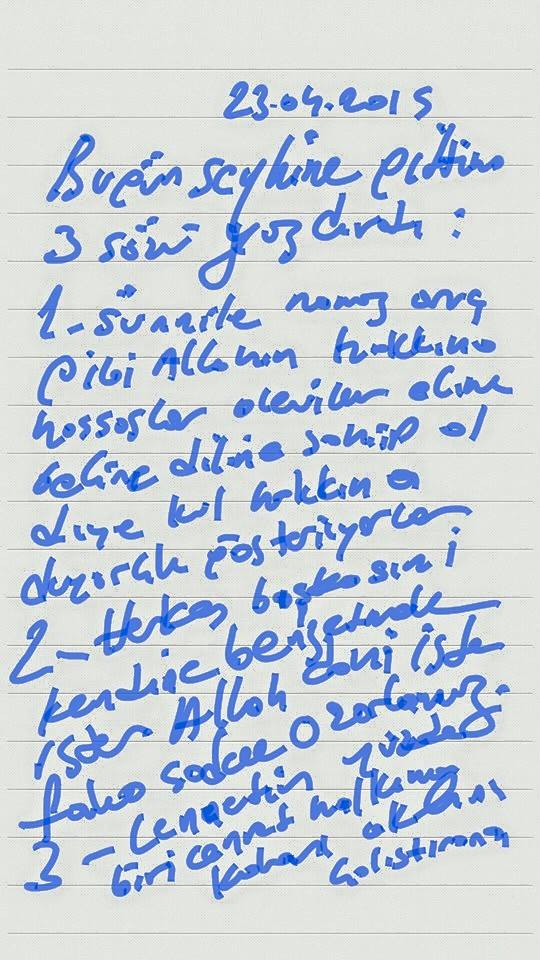 23.04.2015
Bugün şeyhime gittim
3 söz yazdırdı:
1- Sünniler namaz oruç
gibi Allahın hakkına
hassaslar aleviler eline
beline diline sahip ol
diye kul hakkına
duyarlılık gösteriyorlar
2- Herkes başkasını
kendine benzetmek
ister Allah dahi ister
fakat sadece O zorlamaz.
3 - Cennetin yüzde
biri cennet halkının
kalanı aklını
çalıştırana